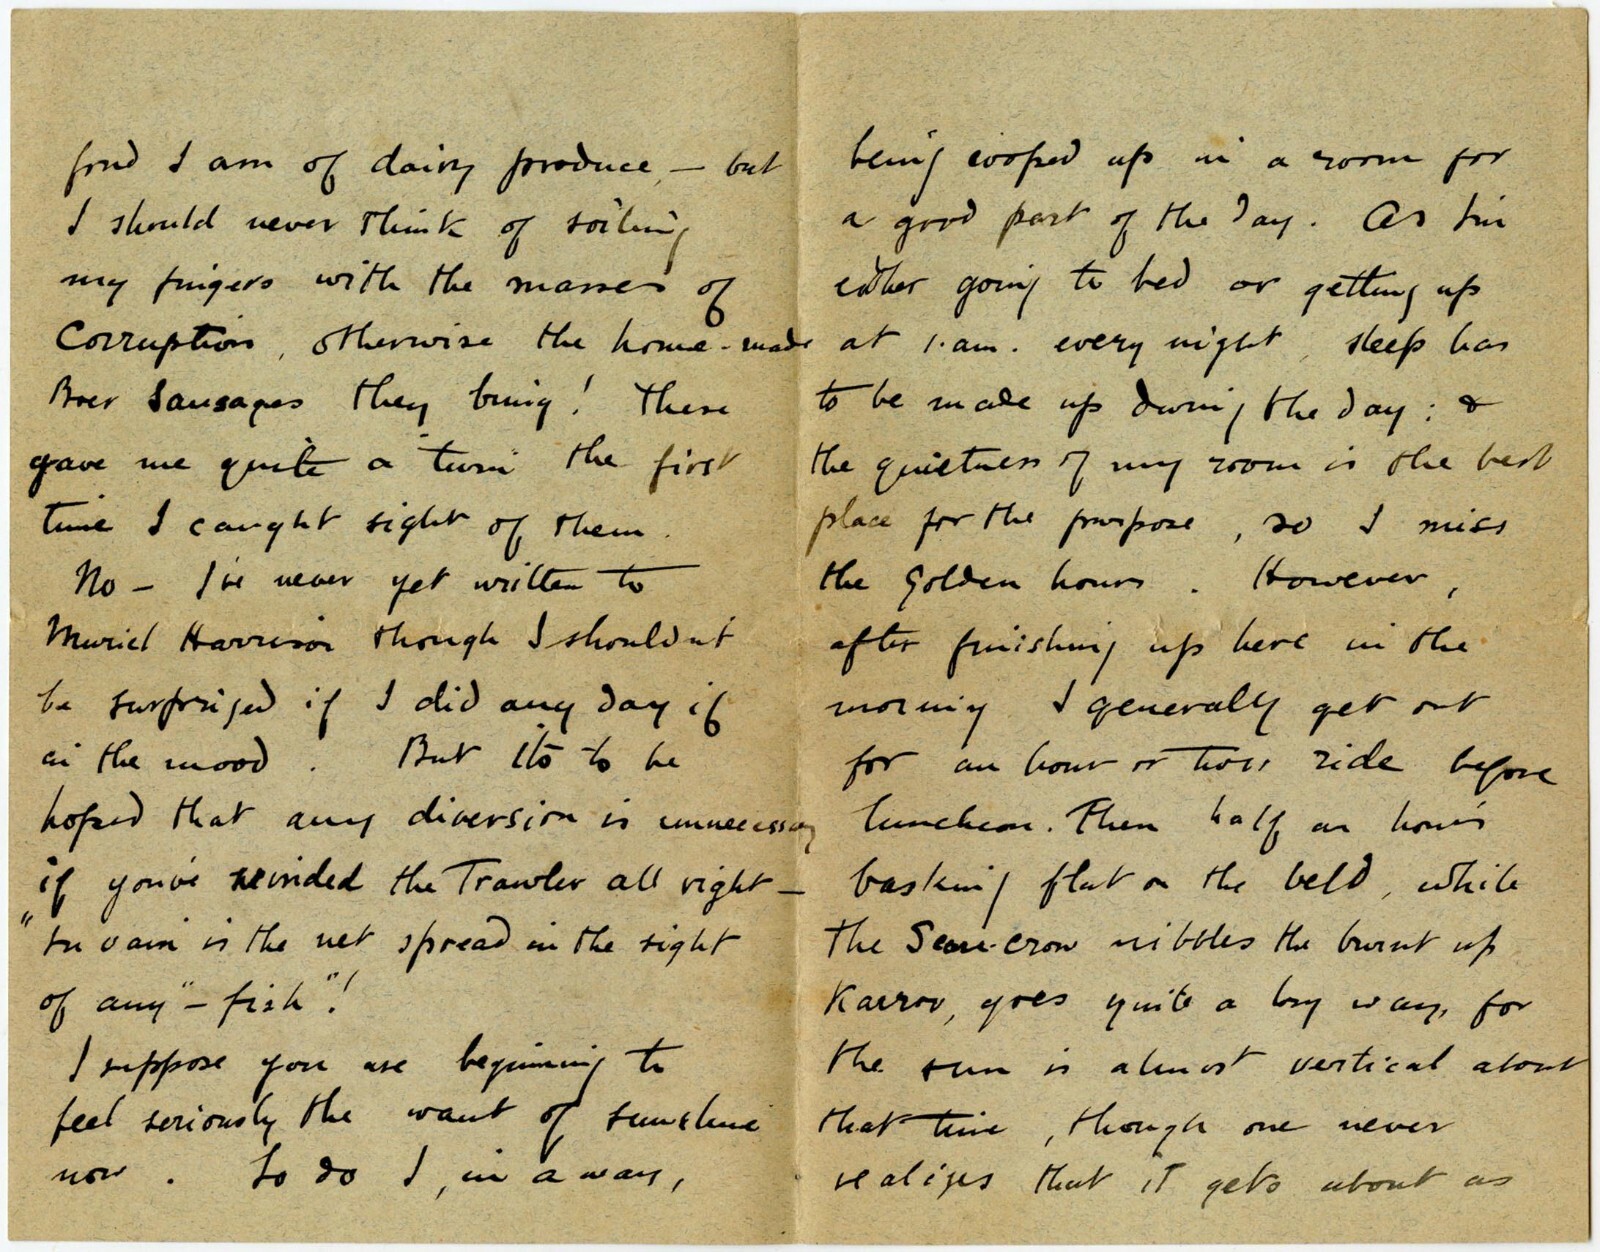 fond I am of dairy produce, — but
I should never think of soiling
my fingers with the masses of
Corruption, otherwise the home-made
Boer Sausages they bring! These
gave me quite a 'turn' the first
time I caught sight of them.
No — I've never yet written to
Muriel Harrison though I shouldn't
be surprized if I did any day if
in the mood. But its to be
hoped that any diversion is unnecessary
if you've winded the Trawler all right —
"In vain is the net spread in the sight
of any" — fish"!
I suppose you are beginning to
feel seriously the want of sunshine
now. So do I, in a way,
being cooped up in a room for
a good part of the day. As I'm
either going to bed or getting up
at 1.am. every night, sleep has
to be made up during the day: &
the quietness of my room is the best
place for the purpose, so I miss
the Golden hours. However,
after finishing up here in the
morning I generally get out
for an hour or two's ride before
luncheon. Then half an hour's
basking flat on the veld, while
the Scare-crow nibbles the burnt up
Karroo, goes quite a long way, for
the sun is almost vertical about
that time, though one never
realizes that it gets about as